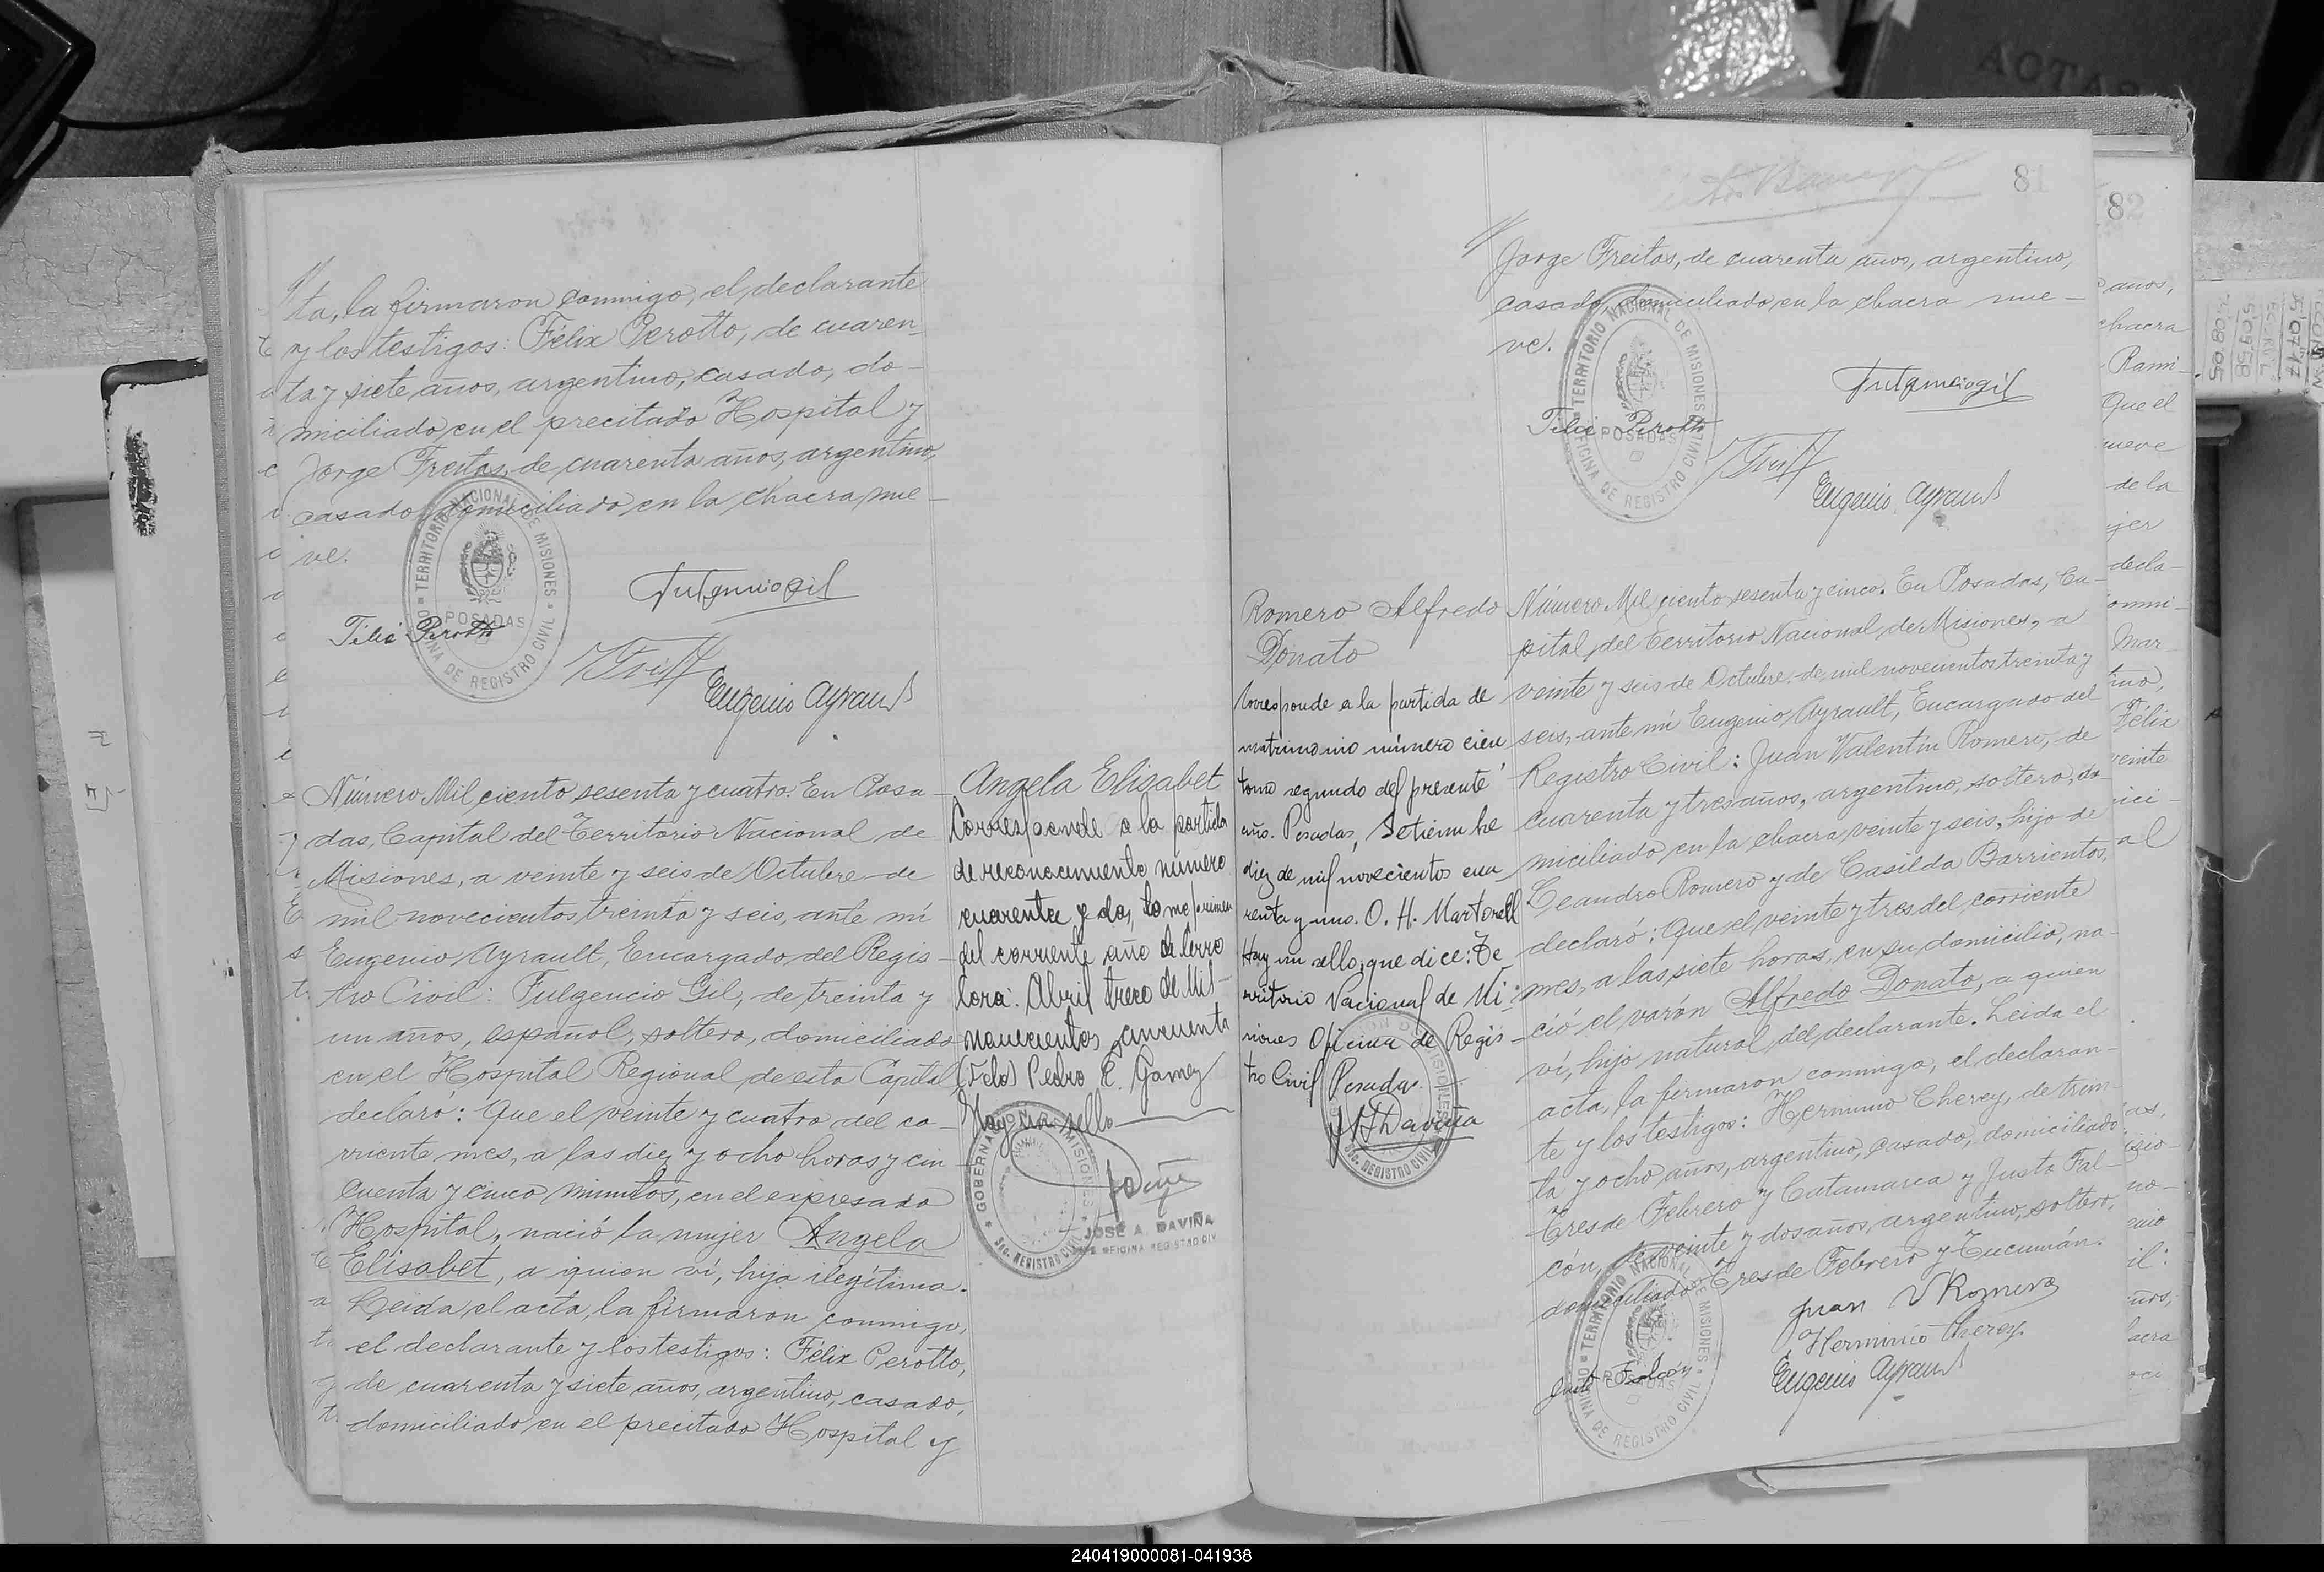 ta, la firmaron conmigo, el declarante
y los testigos: Félix Perotto, de cuaren-
ta y siete años, argentino, casado, do-
miciliado en el precitado Hospital y
Jorge Freitas, de cuarenta años, argentino,
casado, domiciliado en la chacra nue-
ve.
TERRITORIO NACIONAL DE MISIONES
POSADAS
OFICINA DE REGISTRO CIVIL
Fulgencio Gil
Félix Perotto
Eugenio Ayrault
Número Mil ciento sesenta y cuatro. En Posa-
das, Capital del Territorio Nacional de
Misiones, a veinte y seis de Octubre de
mil novecientos treinta y seis, ante mí
Eugenio Ayrault, Encargado del Regis-
tro Civil: Fulgencio Gil, de treinta y
un años, español, soltero, domiciliado
en el Hospital Regional de esta Capital,
declaró: Que el veinte y cuatro del co-
rriente mes, a las diez y ocho horas y cin
cuenta y cinco minutos, en el expresado
Hospital, nació la mujer Angela
Elisabet, a quien ví, hija ilegítima.
Leida el acta, la firmaron conmigo,
el declarante y los testigos: Félix Perotto,
de cuarenta y siete años, argentino, casado,
domiciliado en el precitado Hospital y
Angela Elisabet
Corresponde a la partida
de reconocimiento número
cuarenta y dos, tomo primero
del corriente año de Cerro
Corá. Abril trece de Mil
novecientos cincuenta
(Fdo) Pedro R. Gamez
Hay un sello
JOSE A. DAVIÑA
JEFE OFICINA REGISTRO CIV
81
Jorge Freitas, de cuarenta años, argentino,
casado, domiciliado en la chacra nue-
ve.
TERRITORIO NACIONAL DE MISIONES
POSADAS
OFICINA DE REGISTRO CIVIL
Fulgencio Gil
Félix Perotto
Eugenio Ayrault
Romero Alfredo
Donato
Corresponde a la partida de
matrimonio número cien
tomo segundo del presente
año. Posadas, Setiembre
diez de mil novecientos cua
renta y uno. O. H. Martorell
Hay un sello que dice: Te
rritorio Nacional de Mi-
siones Oficina de Regis-
tro Civil Posadas.
Daviña
SEC. REGISTRO CIVIL
Número Mil ciento sesenta y cinco. En Posadas, Ca-
pital del Territorio Nacional de Misiones, a
veinte y seis de Octubre de mil novecientos treinta y
seis, ante mí Eugenio Ayrault, Encargado del
Registro Civil: Juan Valentín Romero, de
cuarenta y tres años, argentino, soltero, do-
miciliado en la chacra veinte y seis, hijo de
Leandro Romero y de Casilda Barrientos,
declaró: Que el veinte y tres del corriente
mes, a las siete horas, en su domicilio, na-
ció el varón Alfredo Donato, a quien
ví, hijo natural del declarante. Leida el
acta, la firmaron conmigo, el declaran-
te y los testigos: Herminio Cherey, de trein-
ta y ocho años, argentino, casado, domiciliado
Tres de Febrero y Catamarca y Justo Fal-
cón, de veinte y dos años, argentino, soltero,
domiciliado Tres de Febrero y Tucumán.
Juan V Romero
Herminio Cherey
Justo Falcón
Eugenio Ayrault
82
años,
chacra
Rami-
Que el
nueve
de la
decla-
Mar-
Félix
veinte
al
240419000081-041938